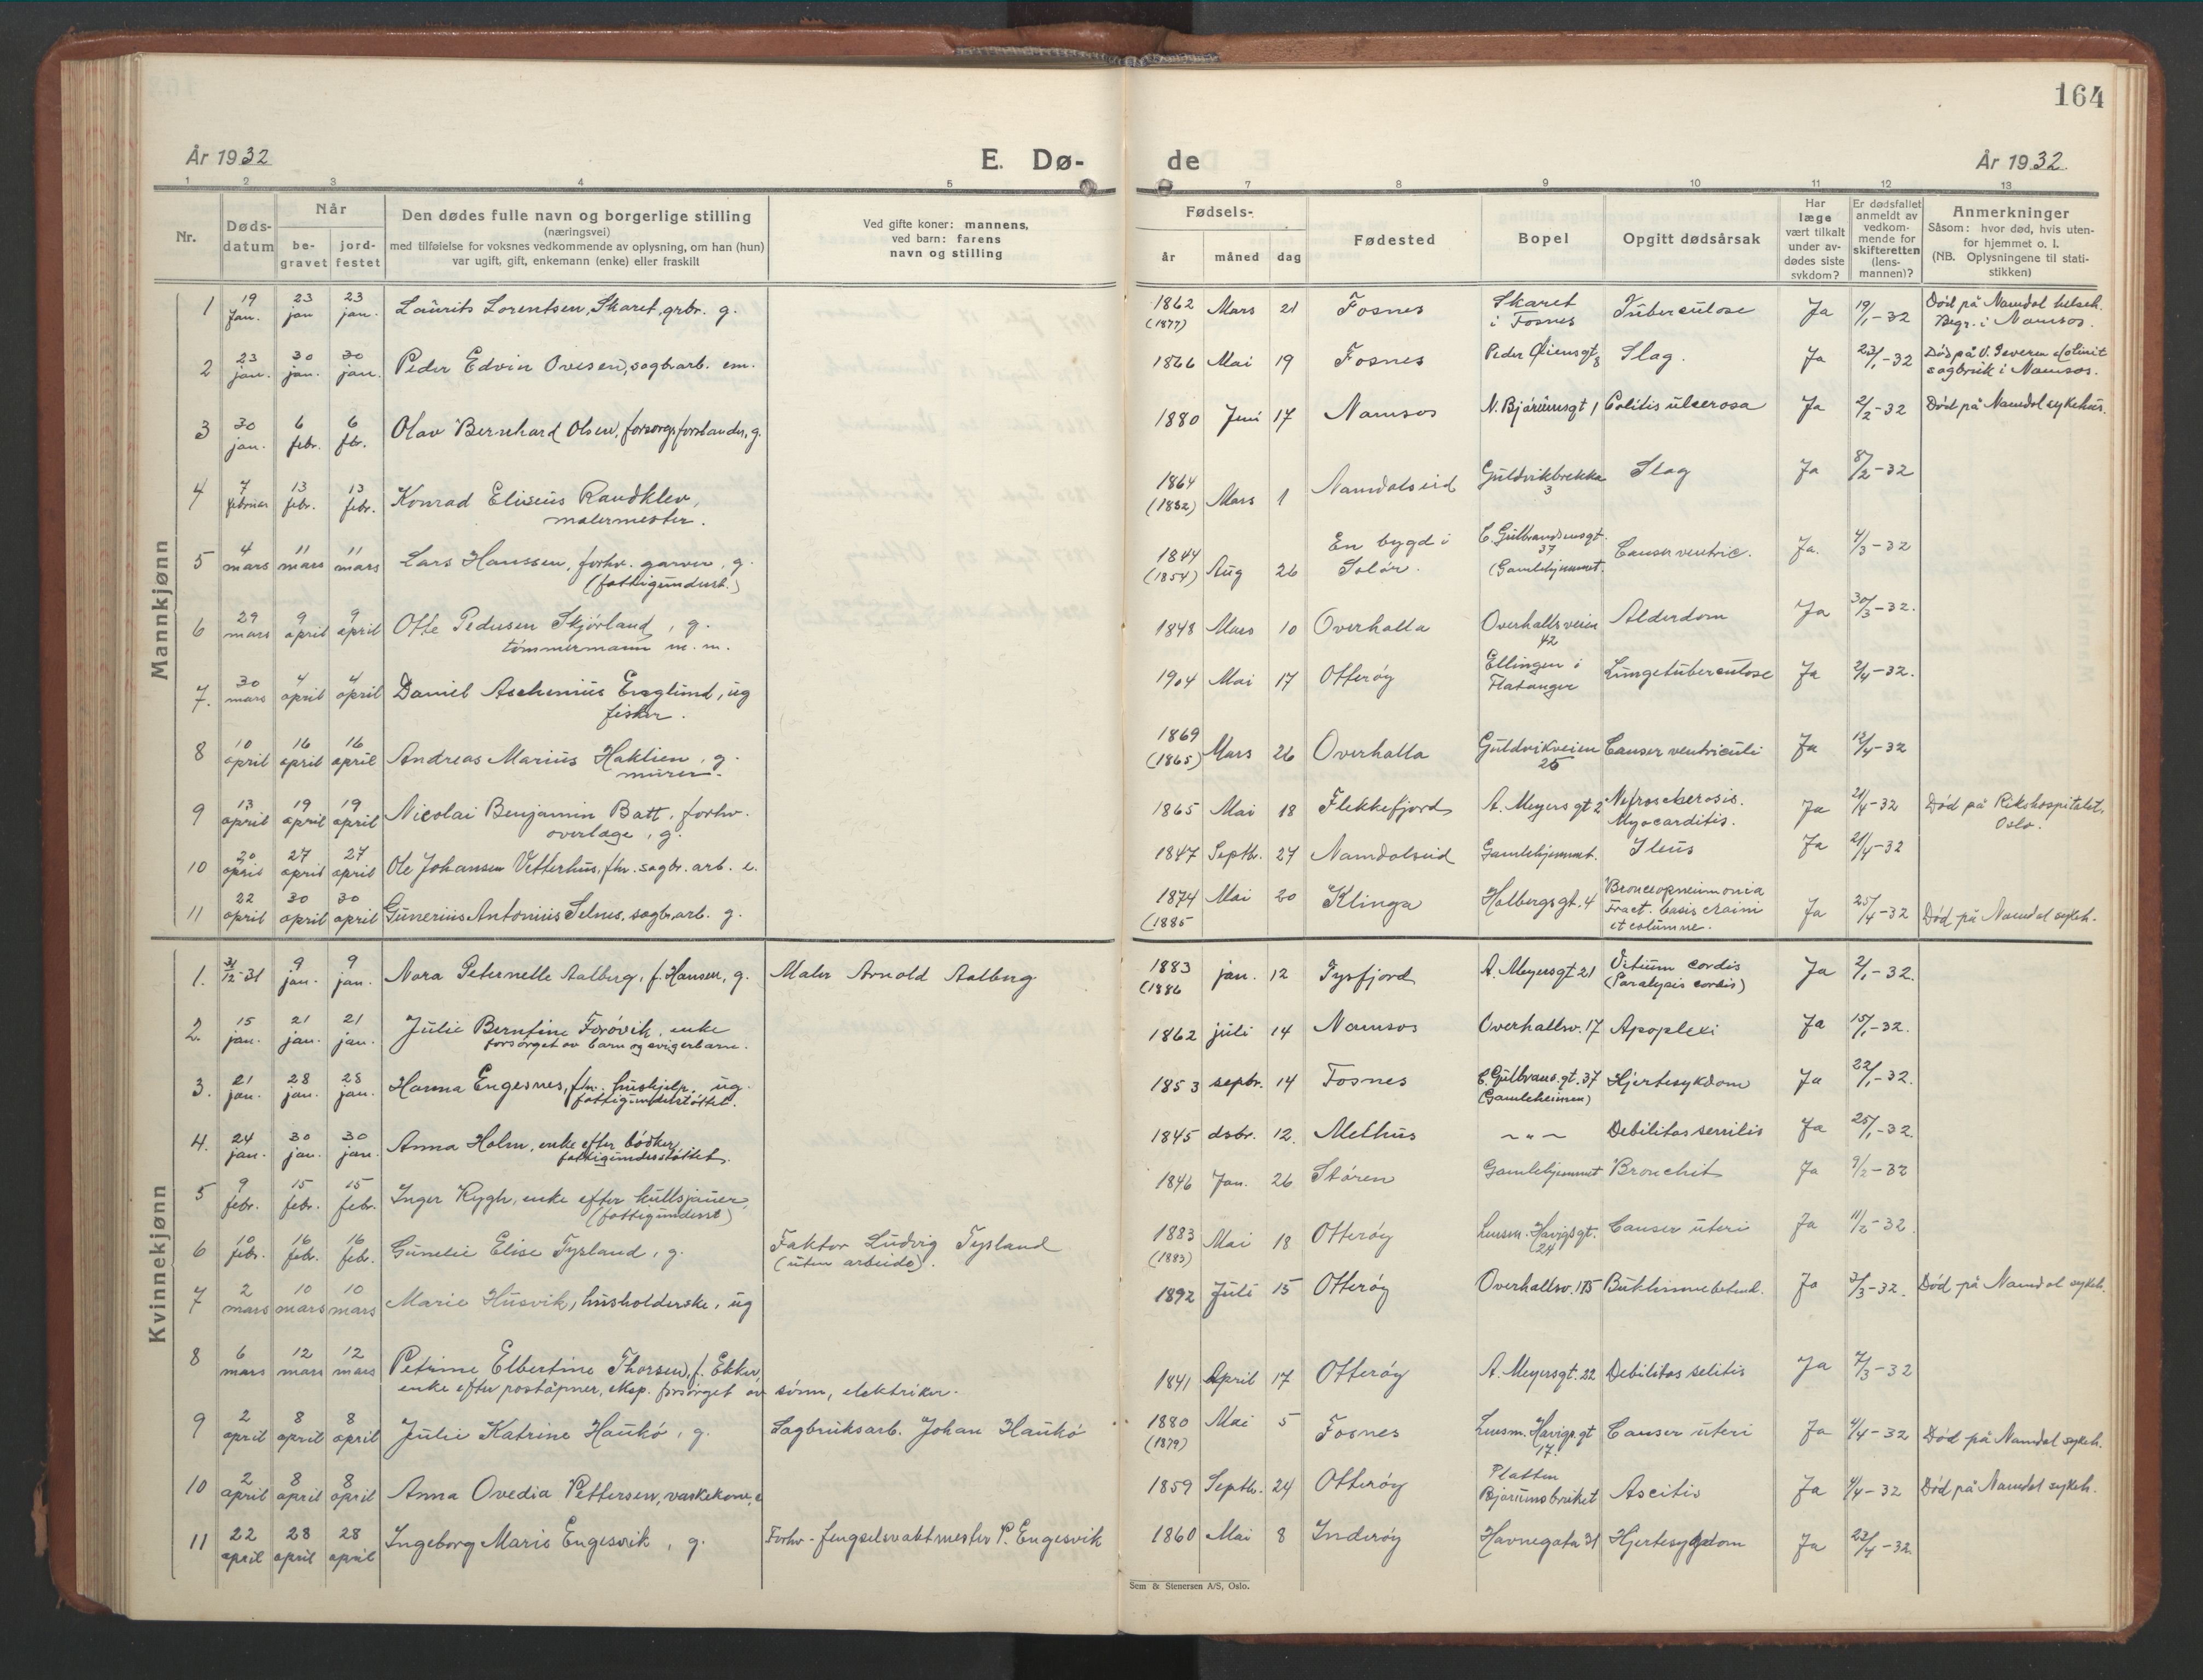 164
År 1932
E. Dø-
de
År 1932.
1 2 3 4 5 7 8 9 10 11 12 13
Nr.
Døds-
datum
Når
be-
gravet
jord-
festet
Den dødes fulle navn og borgerlige stilling
(næringsvei)
med tilføielse for voksnes vedkommende av oplysning, om han (hun)
var ugift, gift, enkemann (enke) eller fraskilt
Ved gifte koner: mannens,
ved barn: farens
navn og stilling
Fødsels-
år måned dag
Fødested
Bopel
Opgitt dødsårsak
Har
læge
vært tilkalt
under av-
dødes siste
sykdom?
Er dødsfallet
anmeldt av
vedkom-
mende for
skifteretten
(lens-
mannen)?
Anmerkninger
Såsom: hvor død, hvis uten-
for hjemmet o. l.
(NB. Oplysningene til stati-
stikken)
Mannkjønn
1 19 Jan. 23 jan 23 jan. Laurits Lorentsen, Skaret, grbr. g. 1862 (1877) Mars 21 Fosnes Skaret i Fosnes Tuberculose Ja 19/1-32 Død på Namdal helseh. Begr. i Namsos.
2 23 jan. 30 jan. 30 jan. Peder Edvin Ovesen, sagbr.arb. em. 1866 Mai 19 Fosnes Peder Øiensgt 8 Slag. Ja 23/1-32 Død på V. Severen sagbruk i Namsos.
3 30 jan. 6 febr. 6 febr. Olav Bernhard Olsen, forsorgsforstander, g. 1880 Juni 17 Namsos N. Bjørumsgt 1 Colitis ulcerosa Ja 2/2-32 Død på Namdal sykehus.
4 7 februar 13 febr. 13 febr. Konrad Eliseus Raudklev,
malermester. 1864 (1832) Mars 1 Namdalseid Guldvikbrekka 3 Slag Ja 8/2-32
5 4 mars 11 mars 11 mars Lars Hanssen, forhv. garver, g.
(fattigunderst.) 1844 (1854) Aug 26 En bygd i Solør. C. Gulbrandsensgt. 37 (Gamlehjemmet. Cancer ventric. Ja. 4/3-32
6 29 mars 9 april 9 april Otte Pedersen Skjørland, g.
tømmermann m. m. 1848 Mars 10 Overhalla Overhallsveien 42 Alderdom Ja 30/3-32.
7. 30 mars 4 april 4 april Daniel Aschenius Englund, ug
fisker. 1904 Mai 17 Otterøy Ellingen i Flatanger Lungetuberculose Ja 2/4-32.
8 10 april 16 april 16 april Andreas Marius Haklien, g.
murer. 1869 (1865) Mars 26 Overhalla Guldvikveien 25 Cancer ventriculi Ja 12/4-32
9 13 april 19 april 19 april Nicolai Benjamin Batt, forhv.
overlæge, g. 1865 Mai 18 Flekkefjord A. Meyers gt 2 Nefrosclerosis. Myocarditis. Ja 21/4-32 Død på Rikshospitalet, Oslo.
10 20 april 27 april 27 april Ole Johansen Vetterhus, fhv. sagbr. arb. e. 1847 Septb. 27 Namdalseid Gamlehjemmet. Ileus Ja 21/4-32
11 22 april 30 april 30 april Gunerius Antonius Selnes, sagbr.arb. g. 1874 (1885 Mai 20 Klinga Holbergsgt. 4 Broncopneumonia Fract. basis craini et columne. Ja 25/4-32 Død på Namdal sykeh.
Kvinnekjønn
1. 31/12-31 9 jan. 9 jan. Nora Peternelle Aalberg, f. Hansen, g. Maler Arnold Aalberg 1883 (1886 jan. 12 Tysfjord A. Meyersgt 21 Vitium cordis (Paralysis cordis) Ja 2/1-32.
2. 15 jan. 21 jan. 21 jan. Julie Berntine Forøvik, enke
forsørget av barn og svigerbarn. 1862 juli 14 Namsos Overhallsv. 17 Apoplexi Ja 15/1-32.
3. 21 jan. 28 jan. 28 jan. Hanna Engesnes, fhv. hushjelp. ug.
fattigunderstøttet. 1853 septbr. 14 Fosnes C. Gulbrans. gt. 37 (Gamleheimen) Hjertesykdom Ja 22/1-32.
4. 24 jan. 30 jan. 30 jan. Anna Holm, enke efter bødker
fattigunderstøttet. 1845 dsbr. 12. Melhus ~ " ~ Debilitas senilis Ja 25/1-32.
5 9 febr. 15 febr. 15 febr. Inger Rygh, enke efter kullsjauer
(fattigunderst) 1846 Jan. 26 Støren Gamlehjemmet Bronchit Ja 9/2-32
6 10 febr. 16 febr. 16 feb. Gunelie Elise Tysland, g. Faktor Ludvig Tysland
(uten arbeide). 1883 (1883) Mai 18 Otterøy Lensm. Havigsgt. 24 Cancer uteri Ja 11/2-32
7 2 mars 10 mars 10 mars Marie Husvik, husholderske, ug 1892 Juli 15 Otterøy Overhallsv. 175 Bukhinnebetend. Ja 3/3-32. Død på Namdal sykeh.
8 6 mars 12 mars 12 mars Petrine Elbertine Thorsen, f. Ekker,
enke efter poståpner, eksp. forsørget av sønn, elektriker. 1841 April 17 Otterøy A. Meyersgt. 22 Debilitas selitis Ja 7/3-32
9 2 april 8 april 8 april Julie Katrine Haukø, g. Sagbruksarb. Johan Haukø 1880 (1879) Mai 5 Fosnes Lensm. Havigs.gt 17. Cancer uteri Ja 4/4-32 Død på Namdal sykeh.
10 2 april 8 april 8 april Anna Ovedia Pettersen, vaskekone, e 1859 Septb. 24 Otterøy Platten Bjørumsbruket Ascitis Ja 4/4-32 Død på Namdal sykeh.
11 22 april 28 april 28 april Ingeborg Marie Engesvik, g. Forhv. fengselsvaktmester P. Engesvik 1860 Mai 8 Inderøy Havnegata 31 Hjertesygdom Ja 23/4-32.
Sem & Stenersen A/S, Oslo.